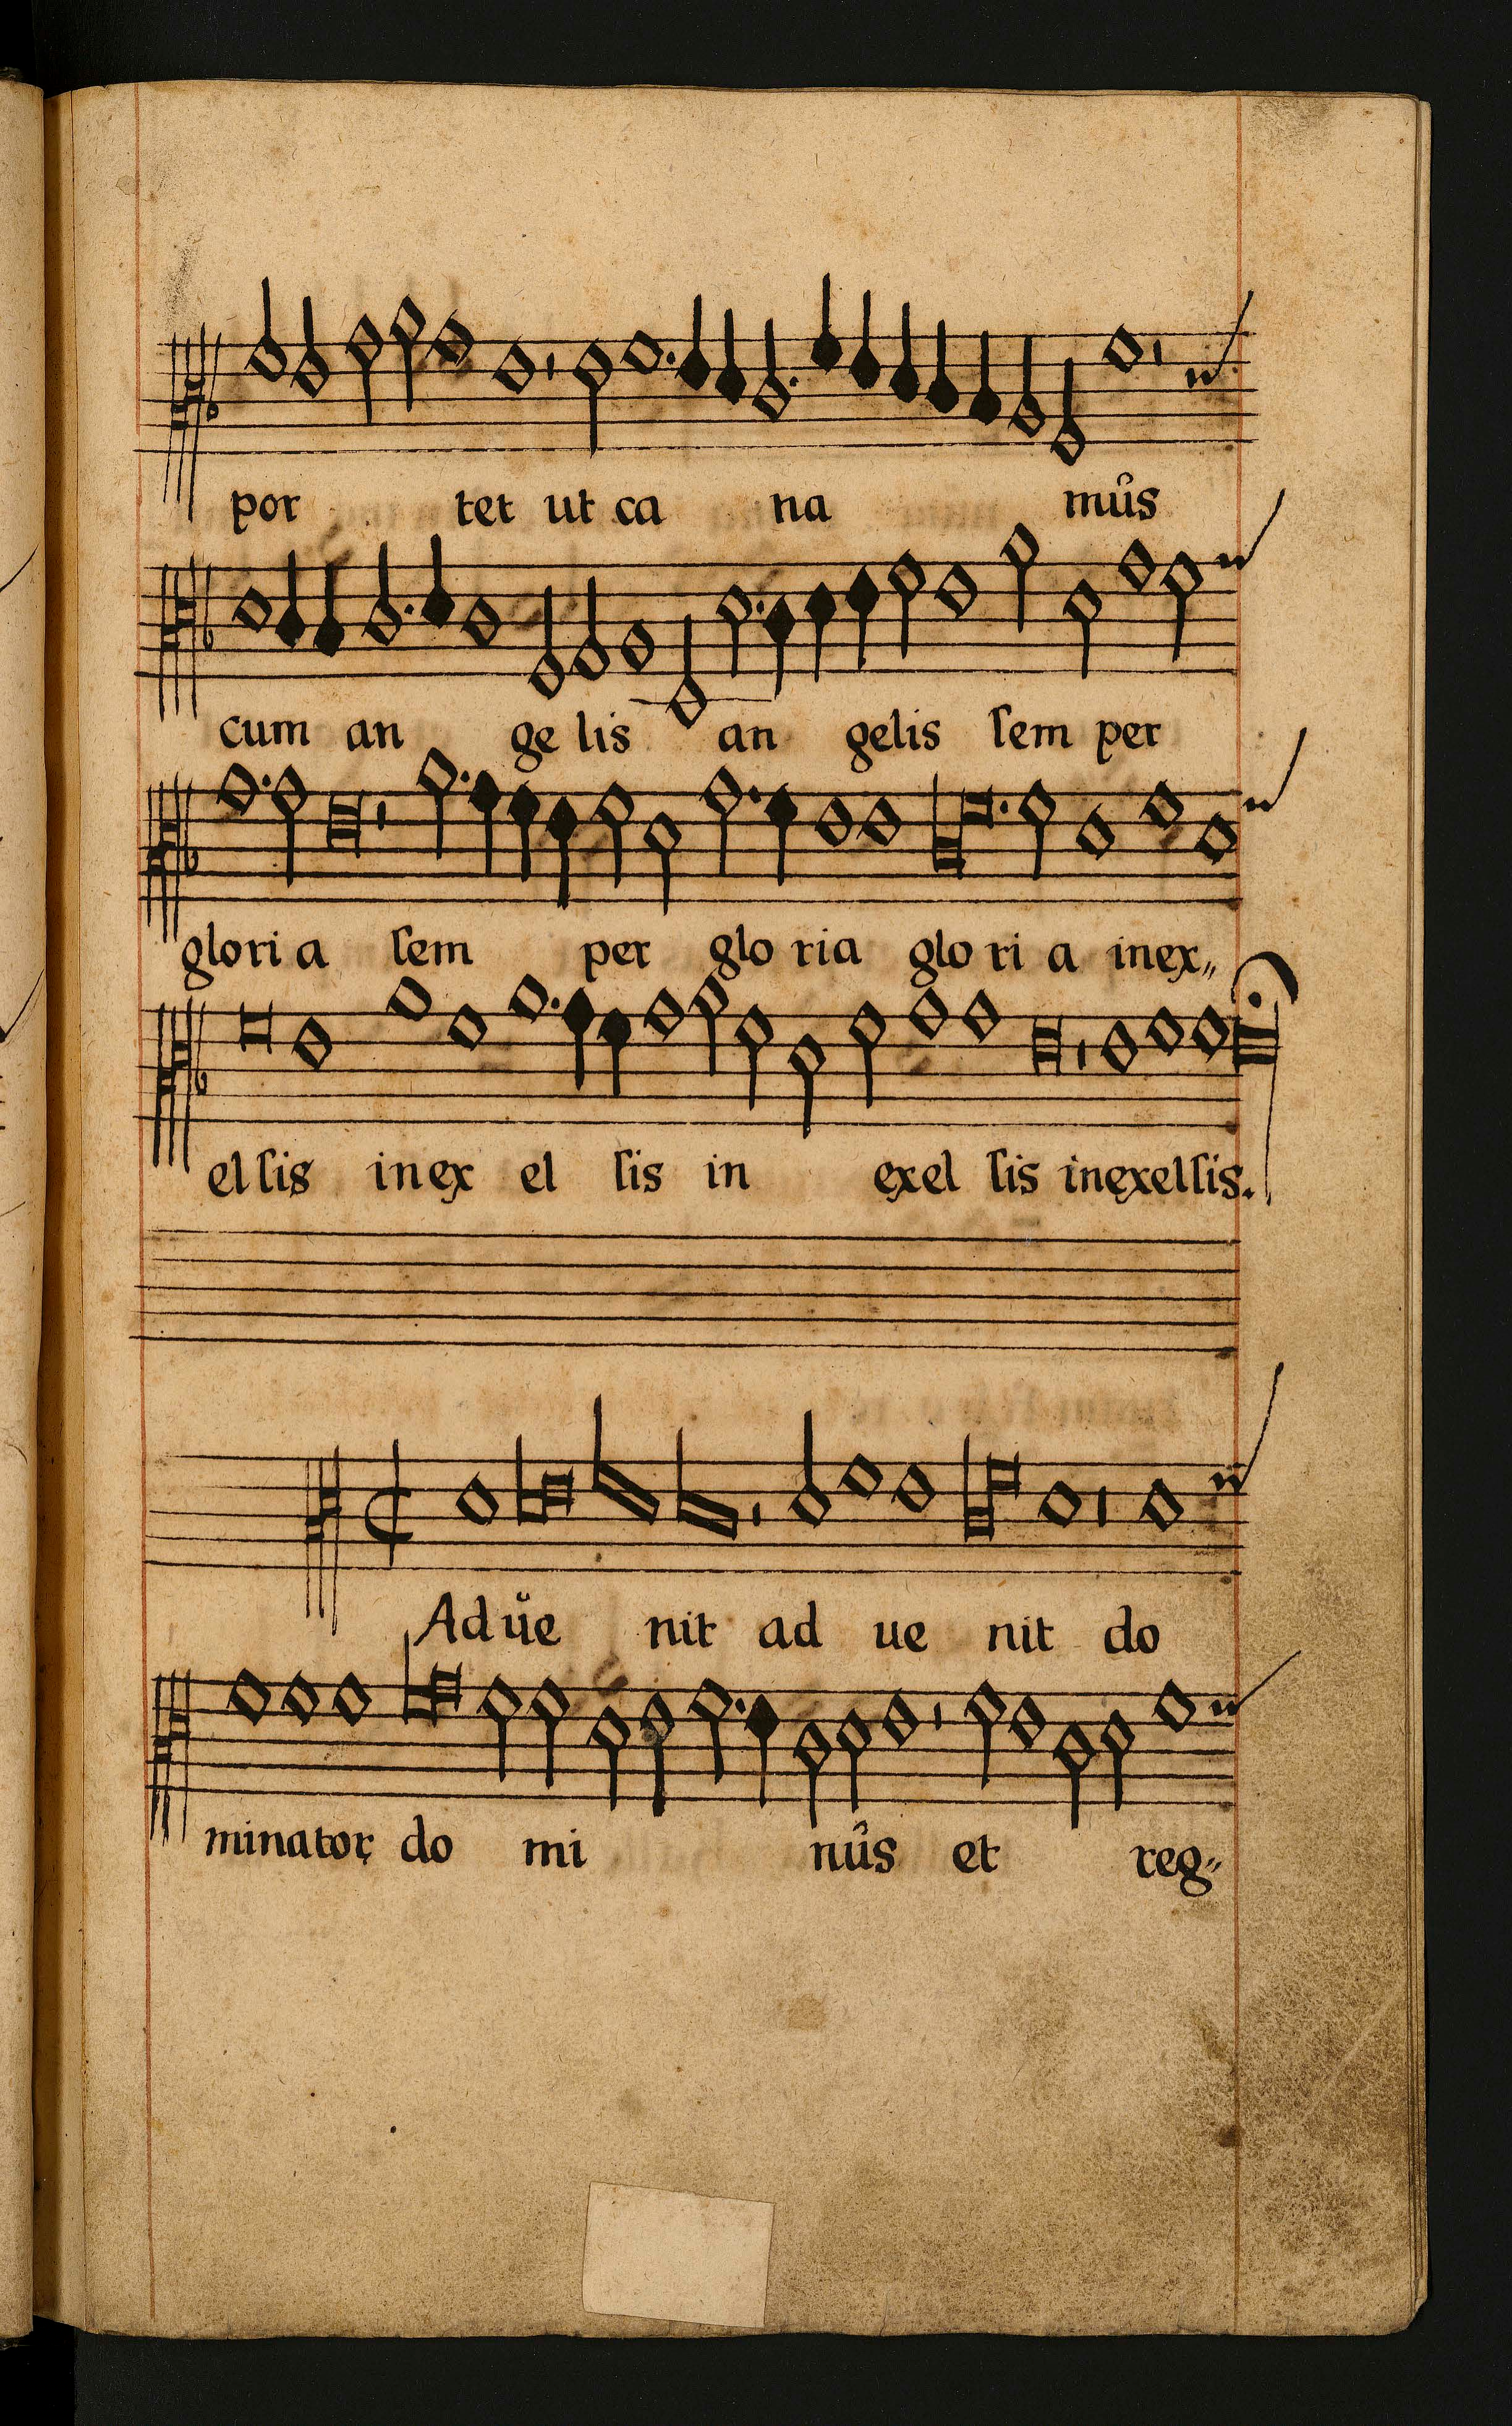 por tet ut ca na mûs
cum an ge lis an gelis ſem per
glori a ſem per glo ria glo ri a inex„
el ſis in ex el ſis in exel ſis inexelſis.
Ad ůe nit ad ue nit do
minator do mi nûs et reg„